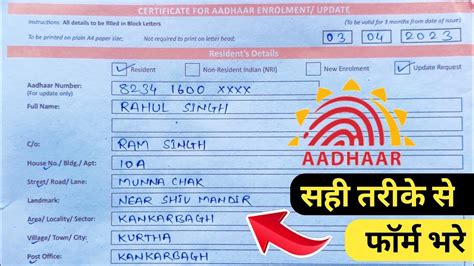 CERTIFICATE FOR AADHAAR ENROLMENT/ UPDATE
Instructions: All details to be filled in Block Letters
(To be valid for 3 months from date of issue)
To be printed on plain A4 paper size; Not required to print on letter head;
03 04 2023
Resident's Details
Resident Non-Resident Indian (NRI) New Enrolment Update Request
Aadhaar Number: 8234 1600 XXXX
(For update only)
Full Name: RAHUL SINGH
C/o: RAM SINGH
House No./Bldg./Apt: 10A
Street/Road/Lane: MUNNA CHAK
Landmark: NEAR SHIV MANDIR
Area/Locality/Sector: KANKARBAGH
Village/Town/City: KURTHA
Post Office: KANKARBAGH
AADHAAR
सही तरीके से
फॉर्म भरे